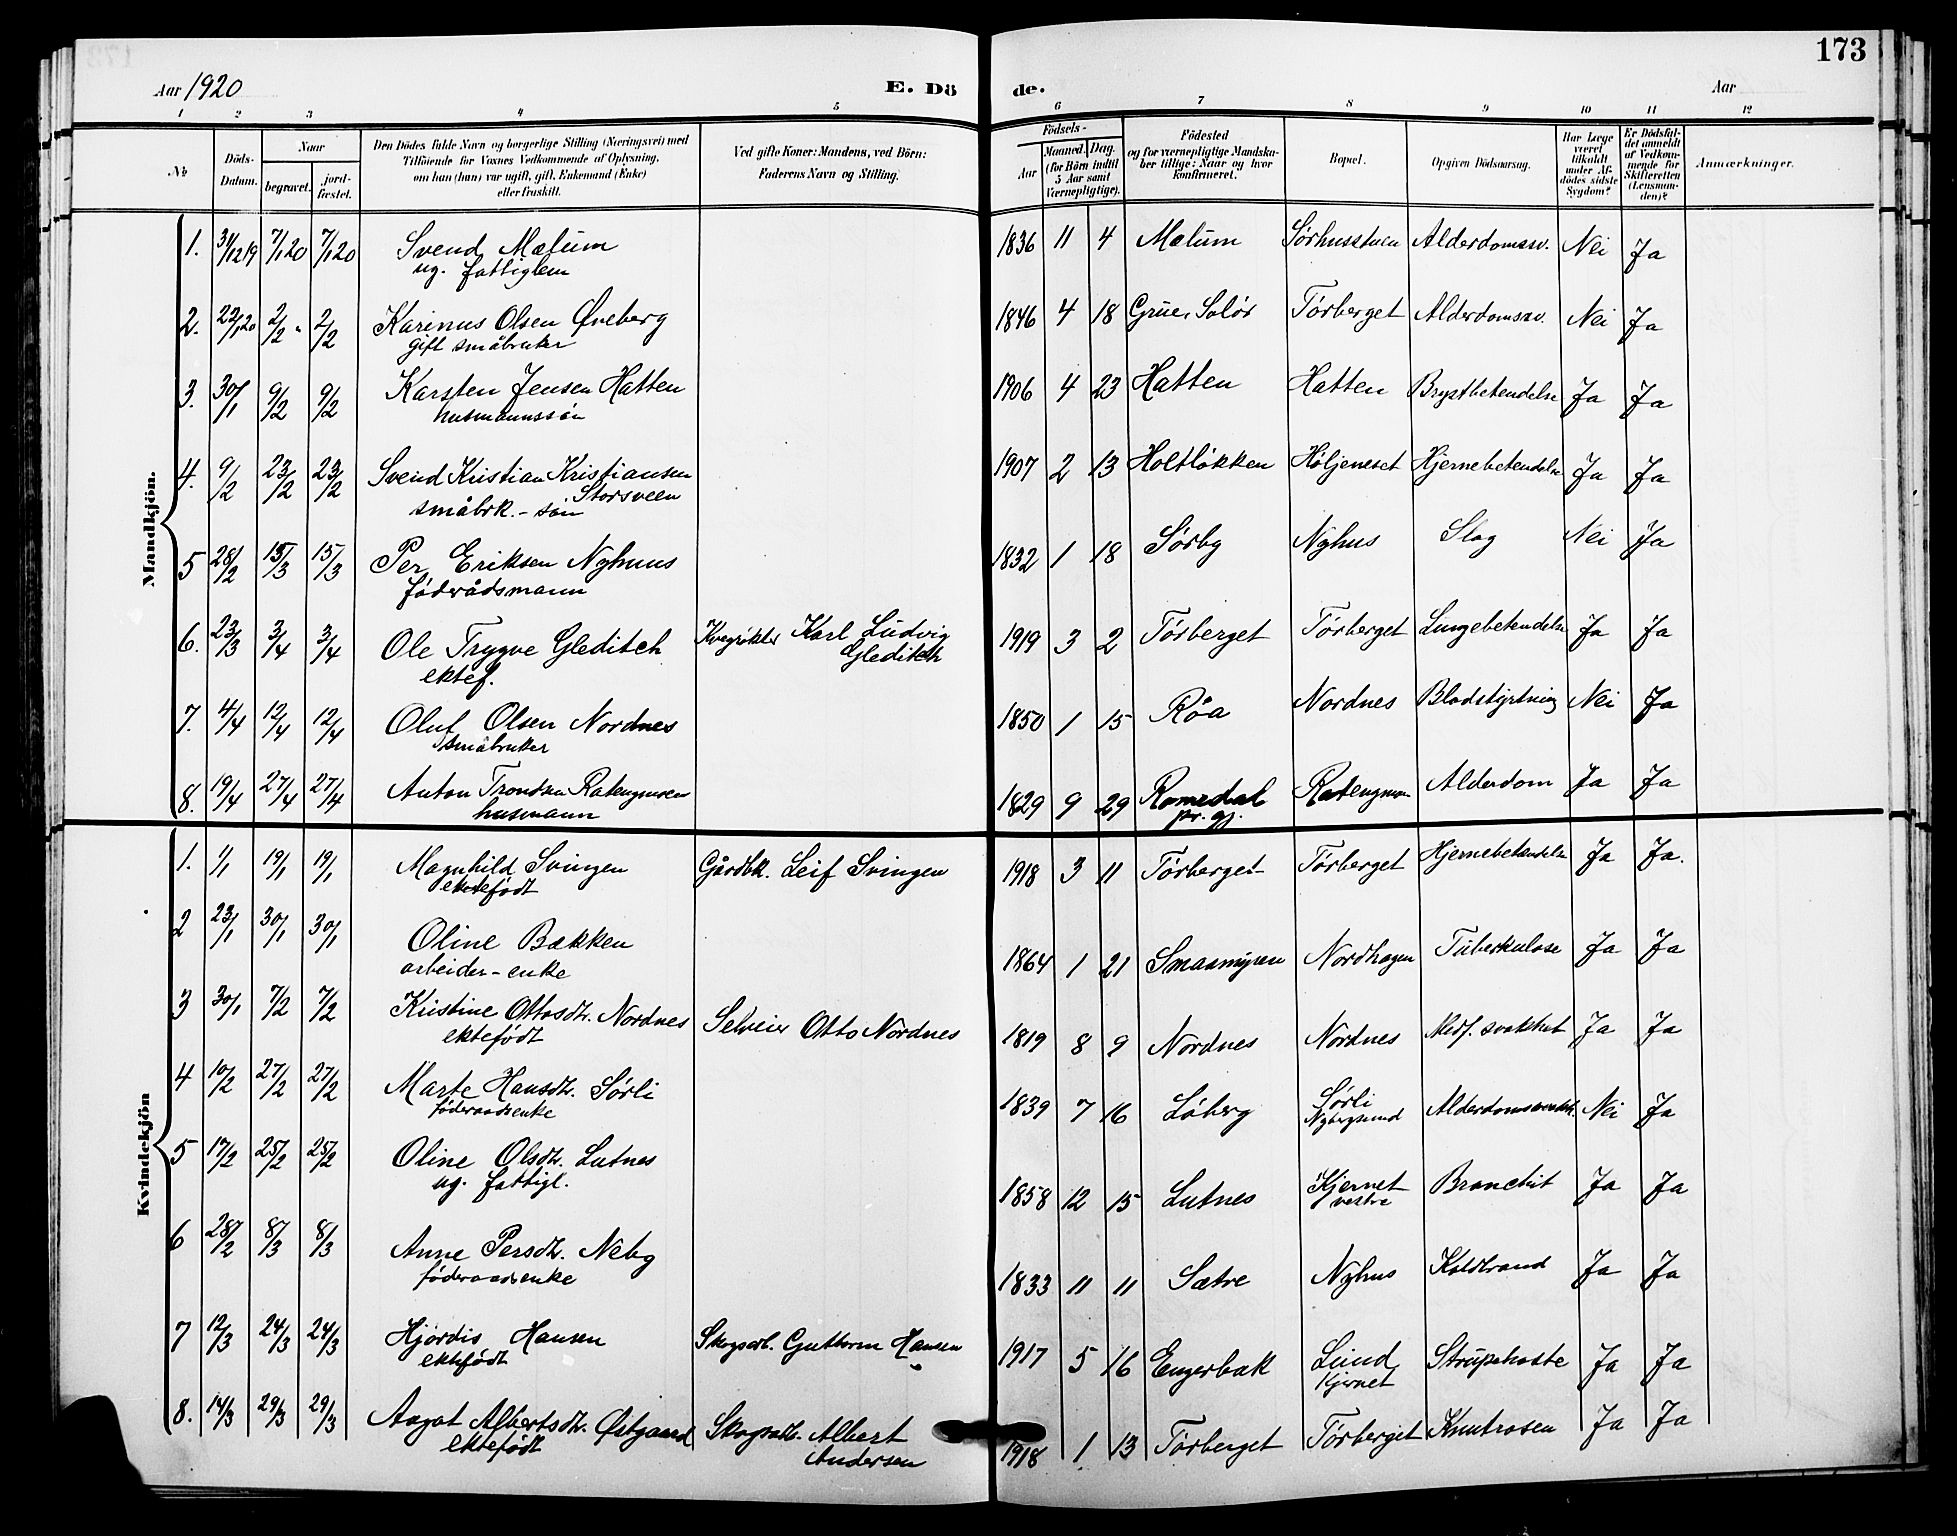 173
Aar 1920 E. Dö de. Aar
1 2 3 4 5 6 7 8 9 10 11 12
No. Döds-Datum. Naar begravet. jordfæstet. Den Dödes fulde Navn og borgerlige Stilling (Næringsvei) med Tilföiende for Voxnes Vedkommende af Oplysning, om han (hun) var ugift, gift, Enkemand (Enke) eller fraskilt. Ved gifte Koner: Mandens, ved Börn: Faderens Navn og Stilling. Födsels- Aar Maaned. Dag. (for Börn indtil 5 Aar samt Værnepligtige). Födested og for værnepligtige Mandskaber tillige: Naar og hvor Konfirmeret. Bopæl. Opgiven Dödsaarsag. Har Læge været tilkaldt under Afdödes sidste Sygdom? Er Dödsfaldet anmeldt af Vedkommende for Skifteretten (Lensmanden)? Anmærkninger.
Mandkjön.
1. 31/12 19 7/1 20 7/1 20 Svend Mælum 1836 11 4 Mælum Sørhusstuen Alderdomssv. Nei Ja
ug. fattiglem
2. 22/1 20 2/2 " 2/2 Karinus Olsen Øveberg 1846 4 18 Grue, Solør Tørberget Alderdomssv. Nei Ja
gift småbruker
3. 30/1 9/2 9/2 Karsten Jensen Hatten 1906 4 23 Hatten Hatten Brystbetendelse Ja Ja
husmannssøn
4. 9/2 23/2 23/2 Svend Kristian Kristiansen 1907 2 13 Holtløkken Høljeneset Hjernebetendelse Ja Ja
Storsveen
småbrk.-søn
5 28/2 15/3 15/3 Per Eriksen Nyhuus 1832 1 18 Sørby Nyhus Slag Nei Ja
fødrådsmann
6. 23/3 3/4 3/4 Ole Trygve Gleditch Kvegrøkter Karl Ludvig Gleditch 1919 3 2 Tørberget Tørberget Lungebetendelse Ja Ja
ektef.
7. 4/4 12/4 12/4 Oluf Olsen Nordnes 1850 1 15 Røa Nordnes Blodstyrtning Nei Ja
småbruker
8. 19/4 27/4 27/4 Anton Trondsen 1829 9 29 Romedal Alderdom Ja Ja
husmann pr. gj.
Kvindekjön
1. 1/1 19/1 19/1 Magnhild Svingen Gårdbk. Leif Svingen 1918 3 11 Tørberget Tørberget Hjernebetendelse Ja Ja.
ektefødt
2 23/1 30/1 30/1 Oline Bækken 1864 1 21 Smaamyren Nordhagen Tuberkulose Ja Ja
arbeider-enke
3 30/1 7/2 7/2 Kristine Ottosdt. Nordnes Selveier Otto Nordnes 1819 8 9 Nordnes Nordnes Medf. svakhet Ja Ja
ektefødt
4 10/2 27/2 27/2 Marte Hansdt. Sørli 1839 7 16 Løberg Sørli Nybergsund Nei Ja
føderaadsenke
5 17/2 25/2 25/2 Oline Olsdt. Lutnes 1858 12 15 Lutnes Kjernet vestre Bronchit Ja Ja
ug. fattigl.
6 28/2 8/3 8/3 Anne Persdt. Neby 1833 11 11 Sætre Nyhus Koldbrand Ja Ja
føderaadsenke
7 12/3 24/3 24/3 Hjørdis Hansen Skogsarb. Guttorm Hansen 1917 5 16 Engerbak Lund Kjernet Strupehoste Ja Ja
ektefødt
8. 14/3 29/3 29/3 Aagot Albertsdt. Østgaard Skogsarb. Albert Andersen 1918 1 13 Tørberget Tørberget Knutrosen Ja Ja
ektefødt